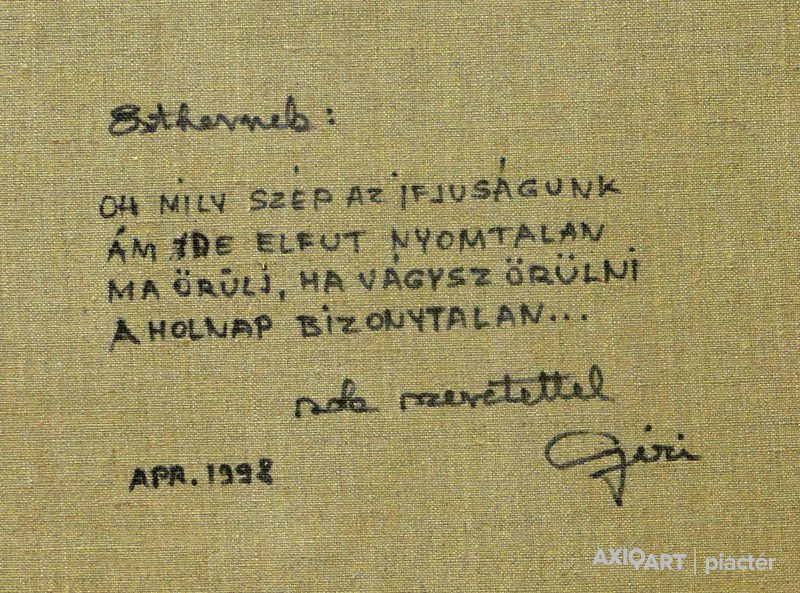 Esthernek:
OH MILY SZÉP AZ IFJUSÁGUNK
ÁM DE ELFUT NYOMTALAN
MA ÖRÜLJ, HA VÁGYSZ ÖRÜLNI
A HOLNAP BIZONYTALAN...
sok szeretettel
Géri
APR. 1998
AXIOART | piactér